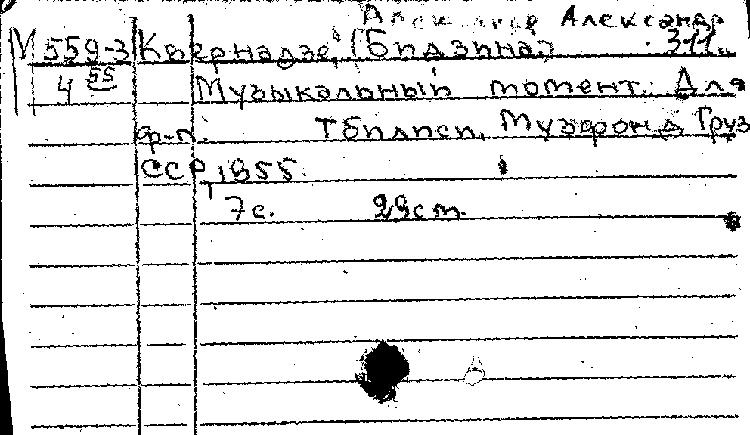 Александр Александр
М 559-3 Квернадзе, (Бидзина)
4 55 Музыкальный момент. Для
ф-п. Тбилиси, Музфонд Груз
ССР, 1955.
7 с. 29 cm.